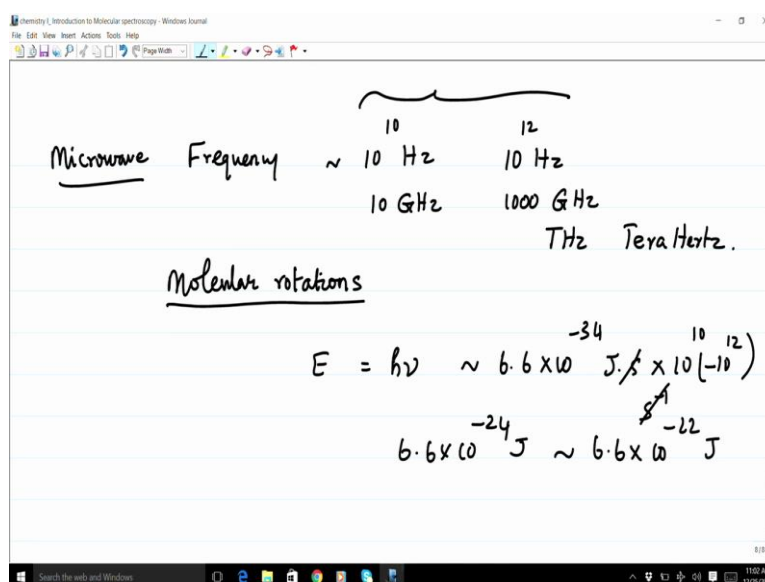 chemistry I_ Introduction to Molecular spectroscopy - Windows Journal
File Edit View Insert Actions Tools Help
Page Width
10 12
Microwave Frequency ~ 10 Hz 10 Hz
10 GHz 1000 GHz
THz Tera Hertz.
Molecular rotations
-34 10 12
E = hν ~ 6.6 x 10 J.s x 10 (-10 )
s-1
-24 -22
6.6 x 10 J ~ 6.6 x 10 J
8/8
Search the web and Windows
11:02 A